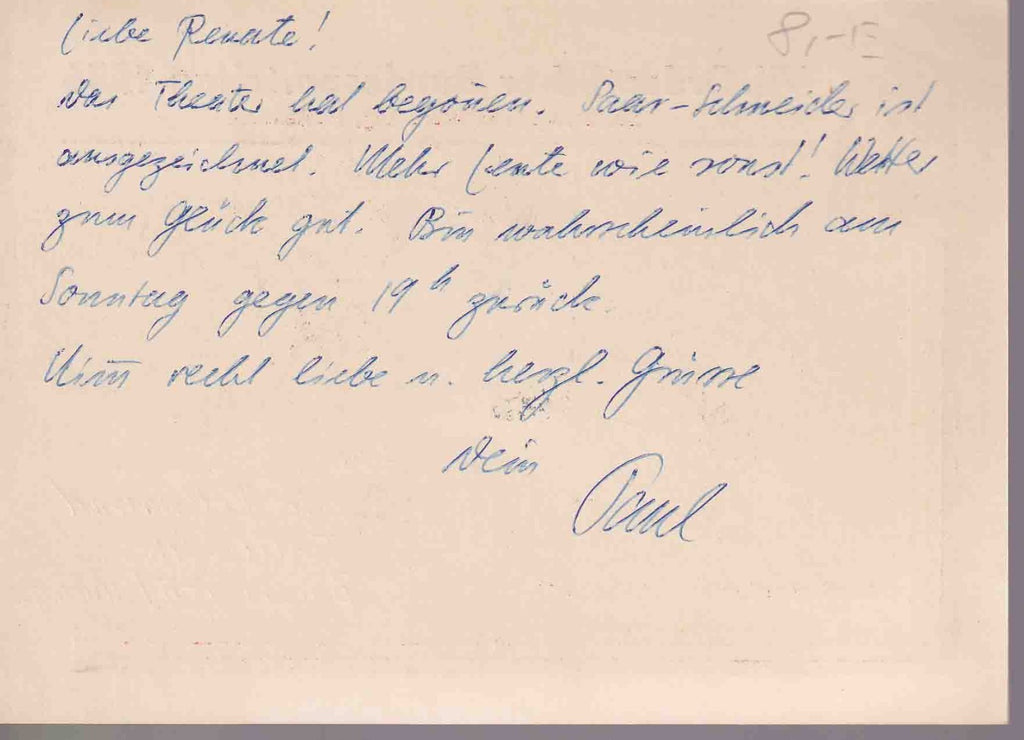 Liebe Renate!
8,-
Das Theater hat begonnen. Saar-Schneider ist
ausgezeichnet. Mehr Leute wie sonst! Wetter
zum Glück gut. Bin wahrscheinlich am
Sonntag gegen 19h zurück.
Nimm recht liebe u. herzl. Grüsse
Dein
Paul